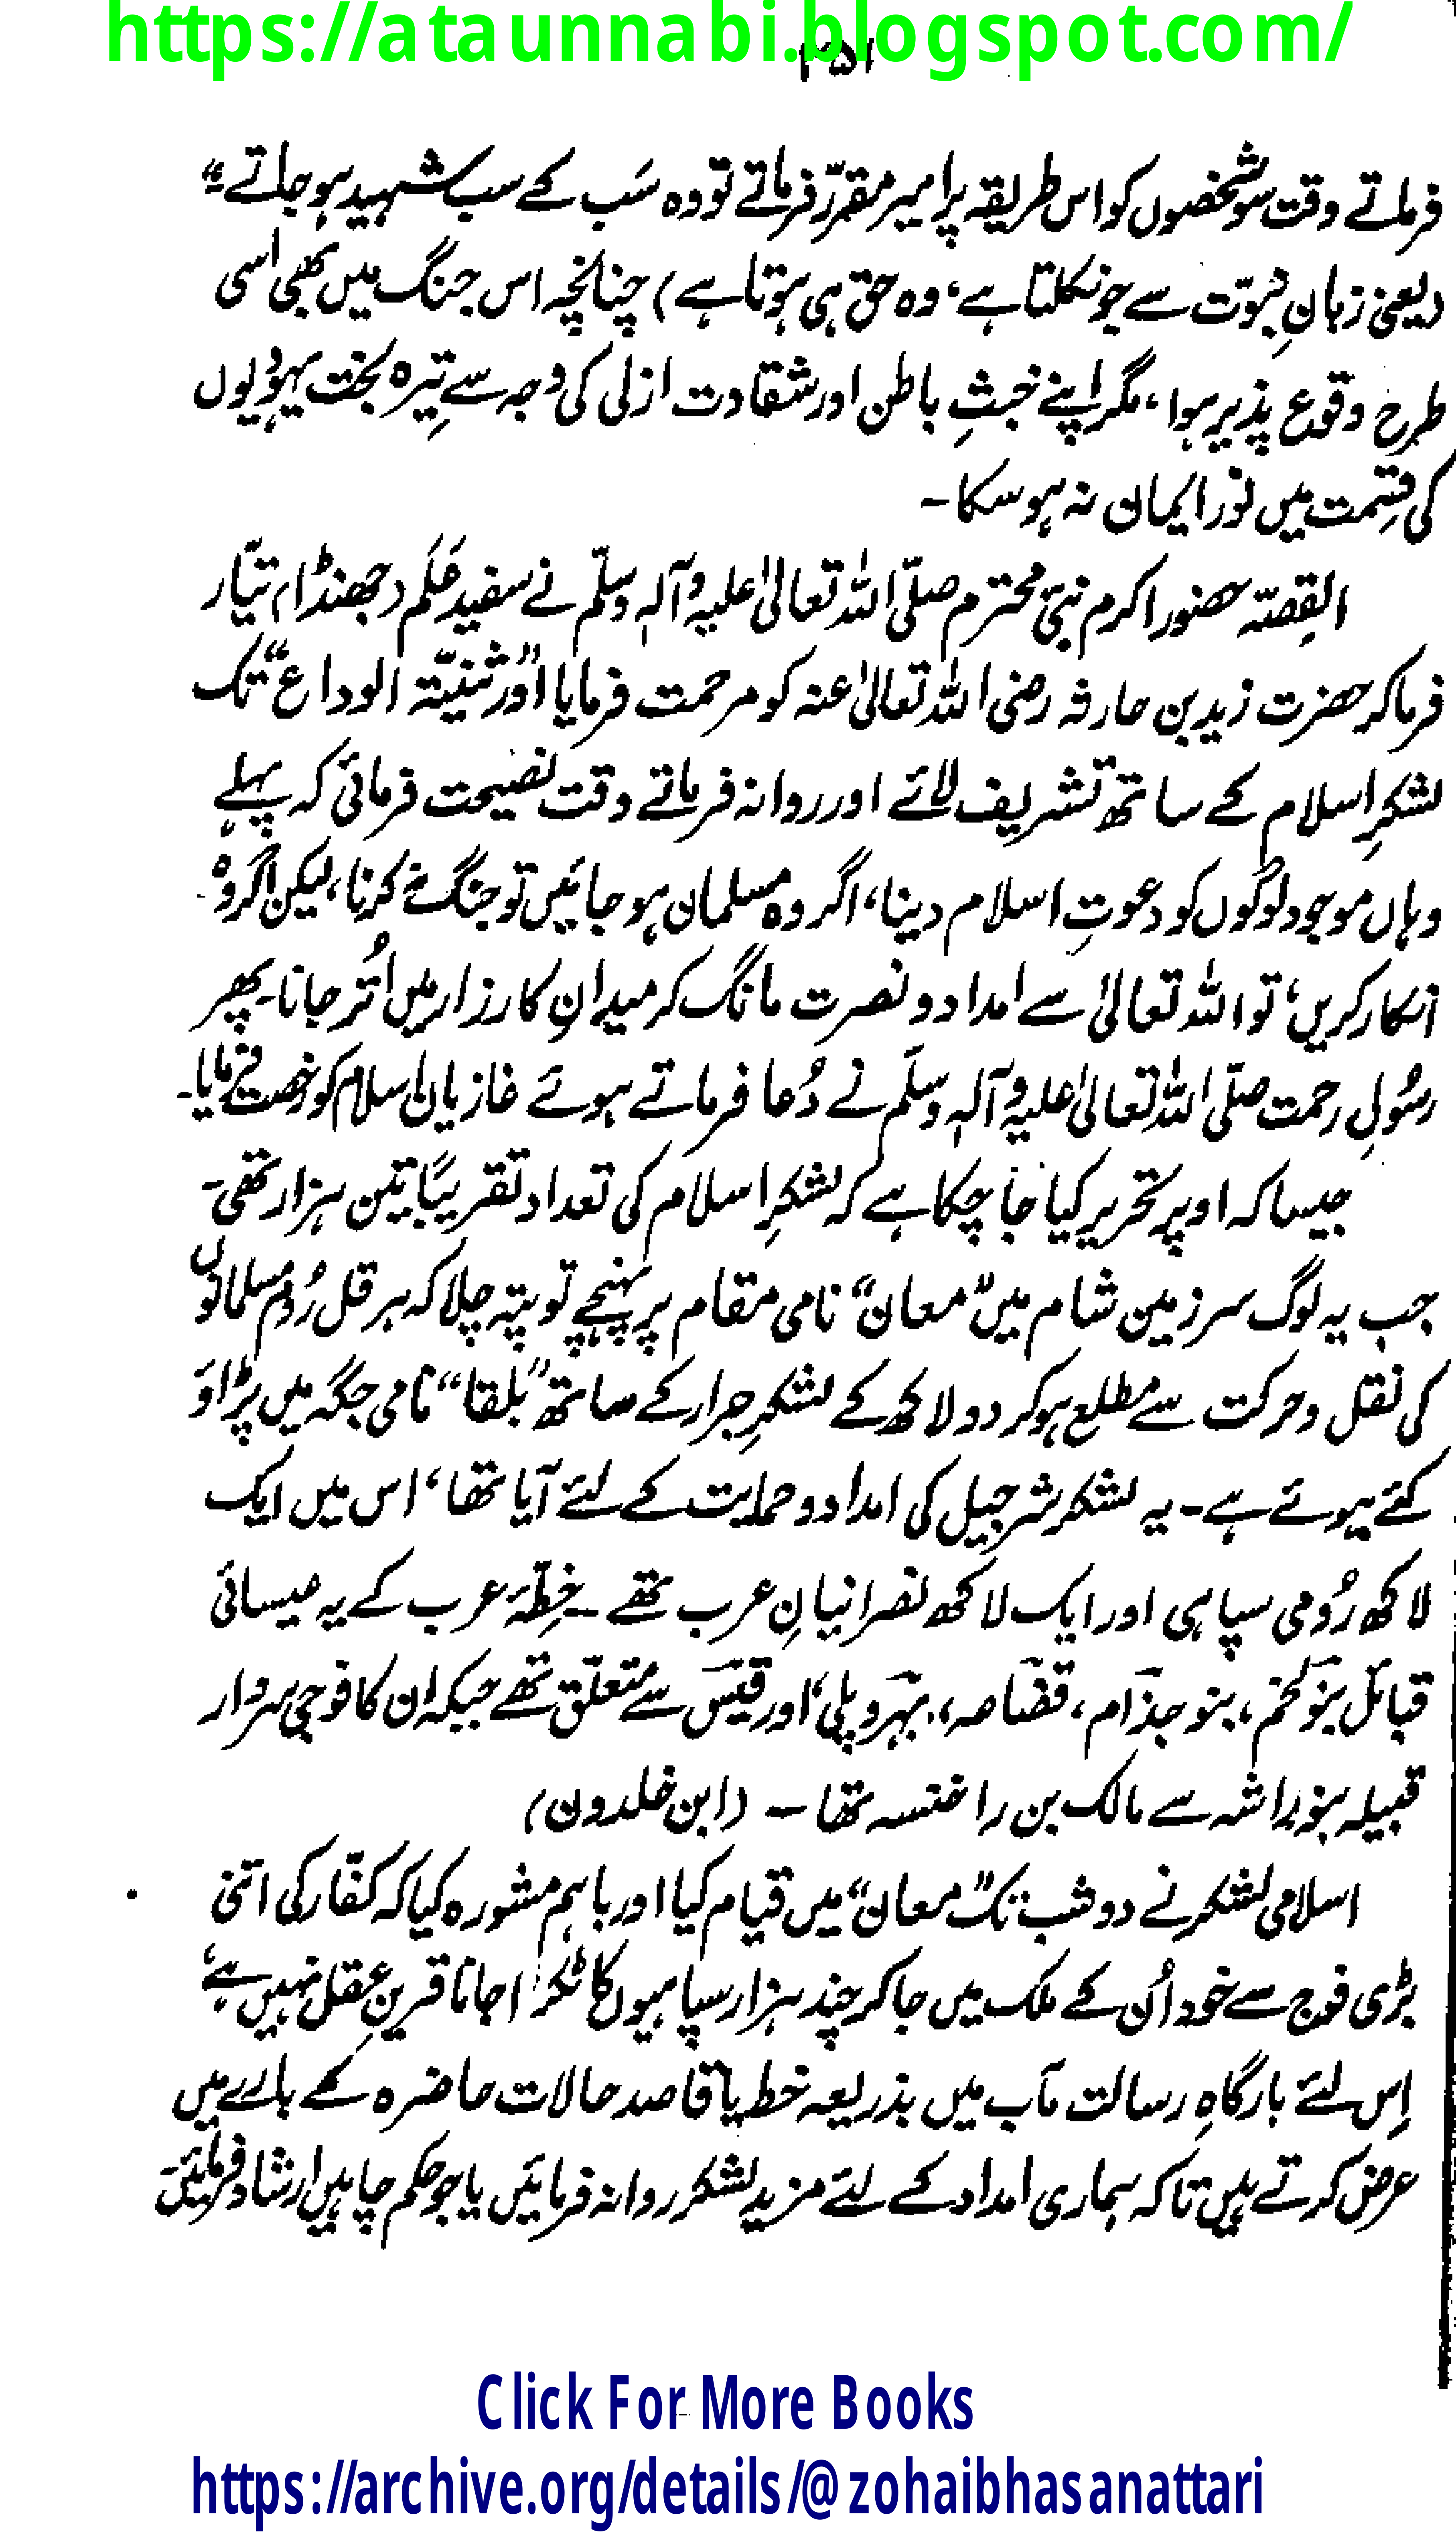 https://ataunnabi.blogspot.com/
۲۵۱
فرماتے وقت سو شخصوں کو اس طریقہ پر امیر مقرّر فرماتے تو وہ سَب کے سب شہید ہو جاتے ۔"
(یعنی زبانِ نبوّت سے جو نکلتا ہے، وہ حق ہی ہوتا ہے) چنانچہ اس جنگ میں بھی اسی
طرح وقوع پذیر ہوا، مگر اپنے خبثِ باطن اور شقاوت ازلی کی وجہ سے تِیرہ بخت یہودیوں
کی قسِمت میں نور ایمان نہ ہو سکا ۔
القِصّہ حضور اکرم نبیّ محترم صلّی اللہ تعالیٰ علیہ وآلہٖ وسلّم نے سفید عَلَم (جھنڈا) تیّار
فرما کر حضرت زید بن حارثہ رضی اللہ تعالیٰ عنہ کو مرحمت فرمایا اور "ثنیّتہ الوداع" تک
لشکرِ اسلام کے ساتھ تشریف لائے اور روانہ فرماتے وقت نصیحت فرمائی کہ پہلے
وہاں موجود لوگوں کو دعوتِ اسلام دینا، اگر وہ مسلمان ہو جائیں تو جنگ نہ کرنا، لیکن اگر وہ
انکار کریں، تو اللہ تعالیٰ سے امداد و نصرت مانگ کر میدانِ کارزار میں اُتر جانا۔ پھر
رسُولِ رحمت صلّی اللہ تعالیٰ علیہ وآلہٖ وسلّم نے دُعا فرماتے ہوئے غازیانِ اسلام کو رخصت فرمایا۔
جیسا کہ اوپر تحریر کیا جا چکا ہے کہ لشکرِ اسلام کی تعداد تقریبًا تین ہزار تھی۔
جب یہ لوگ سرزمین شام میں "معان" نامی مقام پر پہنچے تو پتہ چلا کہ ہرقل رُوم مسلمانوں
کی نقل و حرکت سے مطلع ہو کر دو لاکھ کے لشکرِ جرار کے ساتھ "بلقا" نامی جگہ میں پڑاؤ
کئے ہوئے ہے۔ یہ لشکر شرجیل کی امداد و حمایت کے لئے آیا تھا، اس میں ایک
لاکھ رُومی سپاہی اور ایک لاکھ نصرانیانِ عرب تھے ۔ خِطّۂ عرب کے یہ عیسائی
قبائل بنو لخم، بنو جذام، قضاصہ، بہرو بلی، اور قیس سے متعلّق تھے جبکہ ان کا فوجی سردار
قبیلہ بنو راشہ سے مالک بن راغسہ تھا ۔ (ابن خلدون)
اسلامی لشکر نے دو شب تک "معان" میں قیام کیا اور باہم مشورہ کیا کہ کفّار کی اتنی
بڑی فوج سے خود اُن کے ملک میں جا کر چند ہزار سپاہیوں کا ٹکرا جانا قرینِ عقل نہیں ہے،
اِس لئے بارگاہِ رسالت مآب میں بذریعہ خط یا قاصد حالات حاضرہ کے بارے میں
عرض کرتے ہیں تاکہ ہماری امداد کے لئے مزید لشکر روانہ فرمائیں یا جو حکم چاہیں ارشاد فرمائیں۔
Click For More Books
https://archive.org/details/@zohaibhasanattari